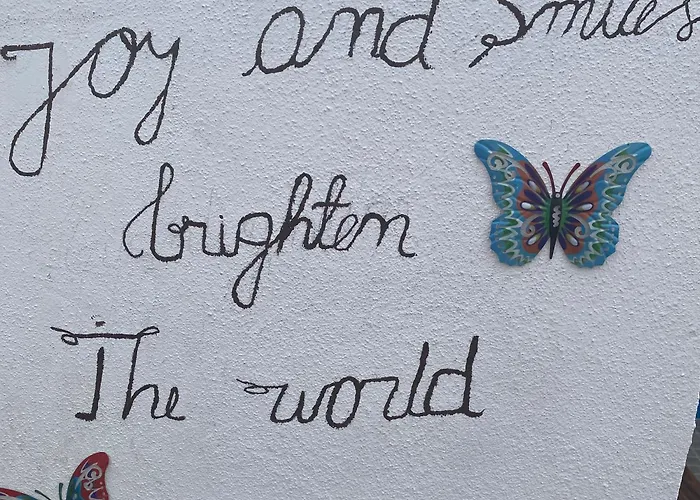 Joy and Smiles
brighten
The world